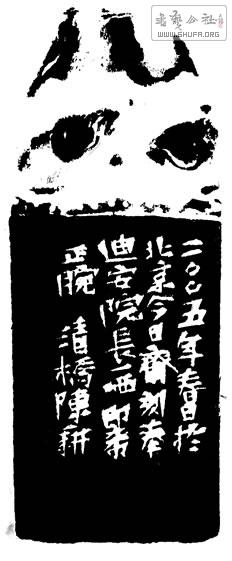 書藝公社
WWW.SHUFA.ORG
二〇〇五年春日於
北京今日齋刻奉
迪安院長一哂即希
正腕 清橋陳耕